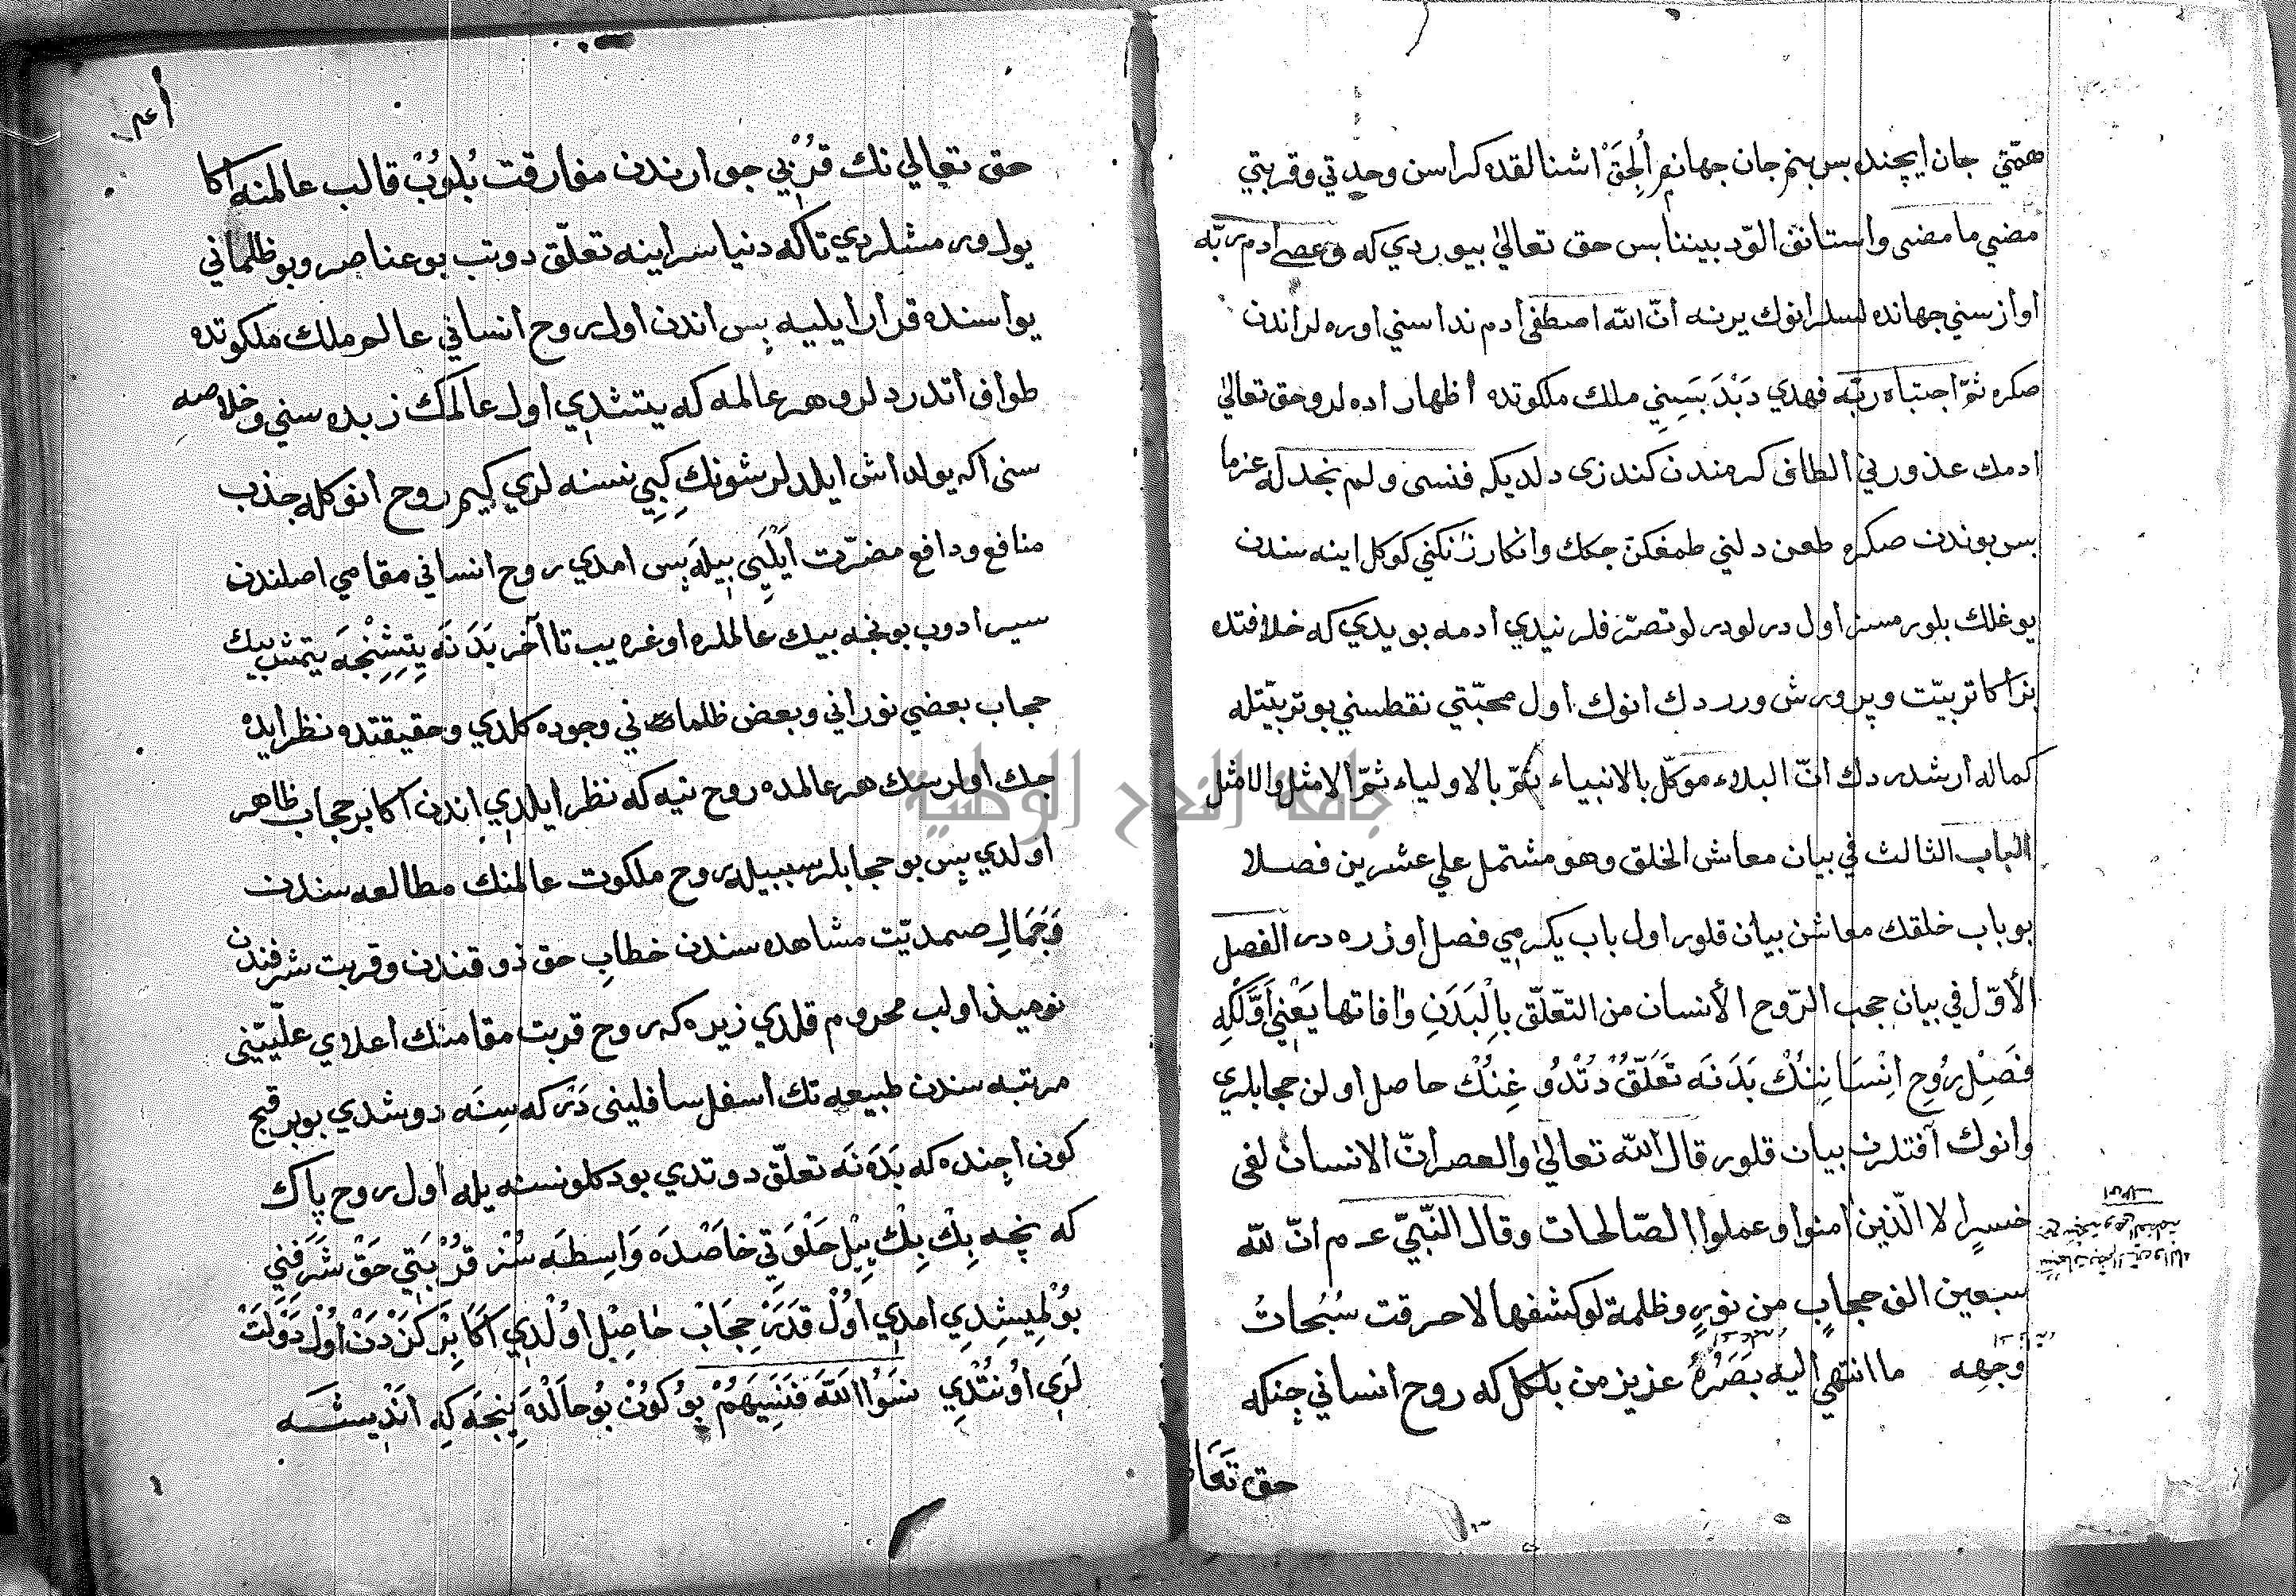 همّتي جان ايچنده بس بنم جان جهانم ألحق اشنالقده كراسن وحدتي وقربتي
مضي ما مضى واستانق الودّ بيننا بس حق تعالى بيوردي كه وعصى ادم ربّه
اوازسني جهانده لسلر انوك يرنه انّ الله اصطفى ادم نداسني اوره لر اندن
صكره ثمّ اجتباه ربّه فهدي دبدبسيني ملك ملكوتده اظهار اده لر وحق تعالى
ادمك عذورني الطاف كرمندن كندزى دلديكه فنسى ولم نجد له عزما
بس بوندن صكره طعن دلني طمغكن جكك وانكار ژنكني كوكل اينه سندن
يوغلك بلورمسز اول درلو درلو تصرفلر نيدي ادمه بويدي كه خلافتده
بزاكا تربيت وپرورش ورردك انوك اول محبّتي نقطسني بو تربيتله
كماله ارشدردك انّ البلاء موكّل بالانبياء ثمّ بالاولياء ثمّ الامثل والامثل
الباب الثالث في بيان معاش الخلق وهو مشتمل علي عشرين فصلا
بو باب خلقك معاشن بيان قلور اول باب يكرمي فصل اوزره در الفصل
الأوّل في بيان حجب الرّوح الأنسان من التعلّق بِالْبَدَنِ وافاتها يَعْنِي اَوَّلكِه
فصل روح اِنْسَانِنُكْ بَدَنَه تَعَلّقْ دُتْدُوغِنُكْ حاصل اولن حجابلري
وانوك آفتلرن بيان قلور قال الله تعالى والعصر انّ الانسان لفى
خسرٍ الا الّذين امنوا وعملوا الصّالحات وقال النّبيّ عـ م انّ لله
سبعين الف حجابٍ من نورٍ وظلمة لو كشفها لاحرقت سُبُحاتُ
وجهه ما انتهي اليه بَصَرُهُ عزيز من بلكل كه روح انساني چنكه
حق تعا
حق تعالي نك قُرْبِي جوارندن مفارقت بُلوُبْ قالب عالمنه اكا
يول ورمشلردي تاكه دنيا سراينه تعلّق دوتب بو عناصر وبو ظلماني
يواسنده قرار ايليه پس اندن اول روح انساني عالم ملك ملكوتده
طواف اتدردلر وهر عالمه كه يتشدي اول عالمك زبده سني وخلاصه
سنى اكه يولداش ايلدلر شونك كِبِي نسنه لري كيم روح انوكله جذب
منافع ودافع مضرّت ايليي بيله پس امدي روح انساني مقامي اصلندن
سير ادوب بونجه بيك عالملره اوغره يب تا آخر بَدَنَه يِتِشِنْجَه يتمش بيك
حجاب بعضي نوراني وبعض ظلماني وجوده كلدي وحقيقتده نظر ايده
جك اولرسك هر عالمده روح نيه كه نظر ايلدي اندن اكا بر حجاب ظاهر
اولدي پس بو حجابلر سببيله روح ملكوت عالمنك مطالعه سندن
وَجَمَالِ صمديّت مشاهده سندن خطابِ حق ذوقندن وقربت شرفندن
نوميذ اولب محروم قلدي زيره كه روح قربت مقامنك اعلاي علّيّيني
مرتبه سندن طبيعه تك اسفل سافليني دَرَكه سِنَه دوشدي بو بر قچ
كون اچنده كه بَدَنَه تعلّق دوتدي بودكلو نسنه يله اول روح پاك
كه نچه بِكْ بِكْ يِيْل خَلْوَتِي خاصْدَه وَاسِطَه سُزْ قُرْبَتِي حَقْ شَرَفِنِي
بُولْمِيشِدِي امدي اوُلْ قَدَرْ حِجَابْ حَاصِلْ اوُلْدِي اكَا بِرْ كَزْدَنْ اوُلْ دَوْلَتْ
لَرِي اوُنُتْدِي نسُوا اللهَ فَنَسِيَهُمْ بوُ كوُنْ بوُ حالْدَه نِيجَه كِه اَنْدِيشَه